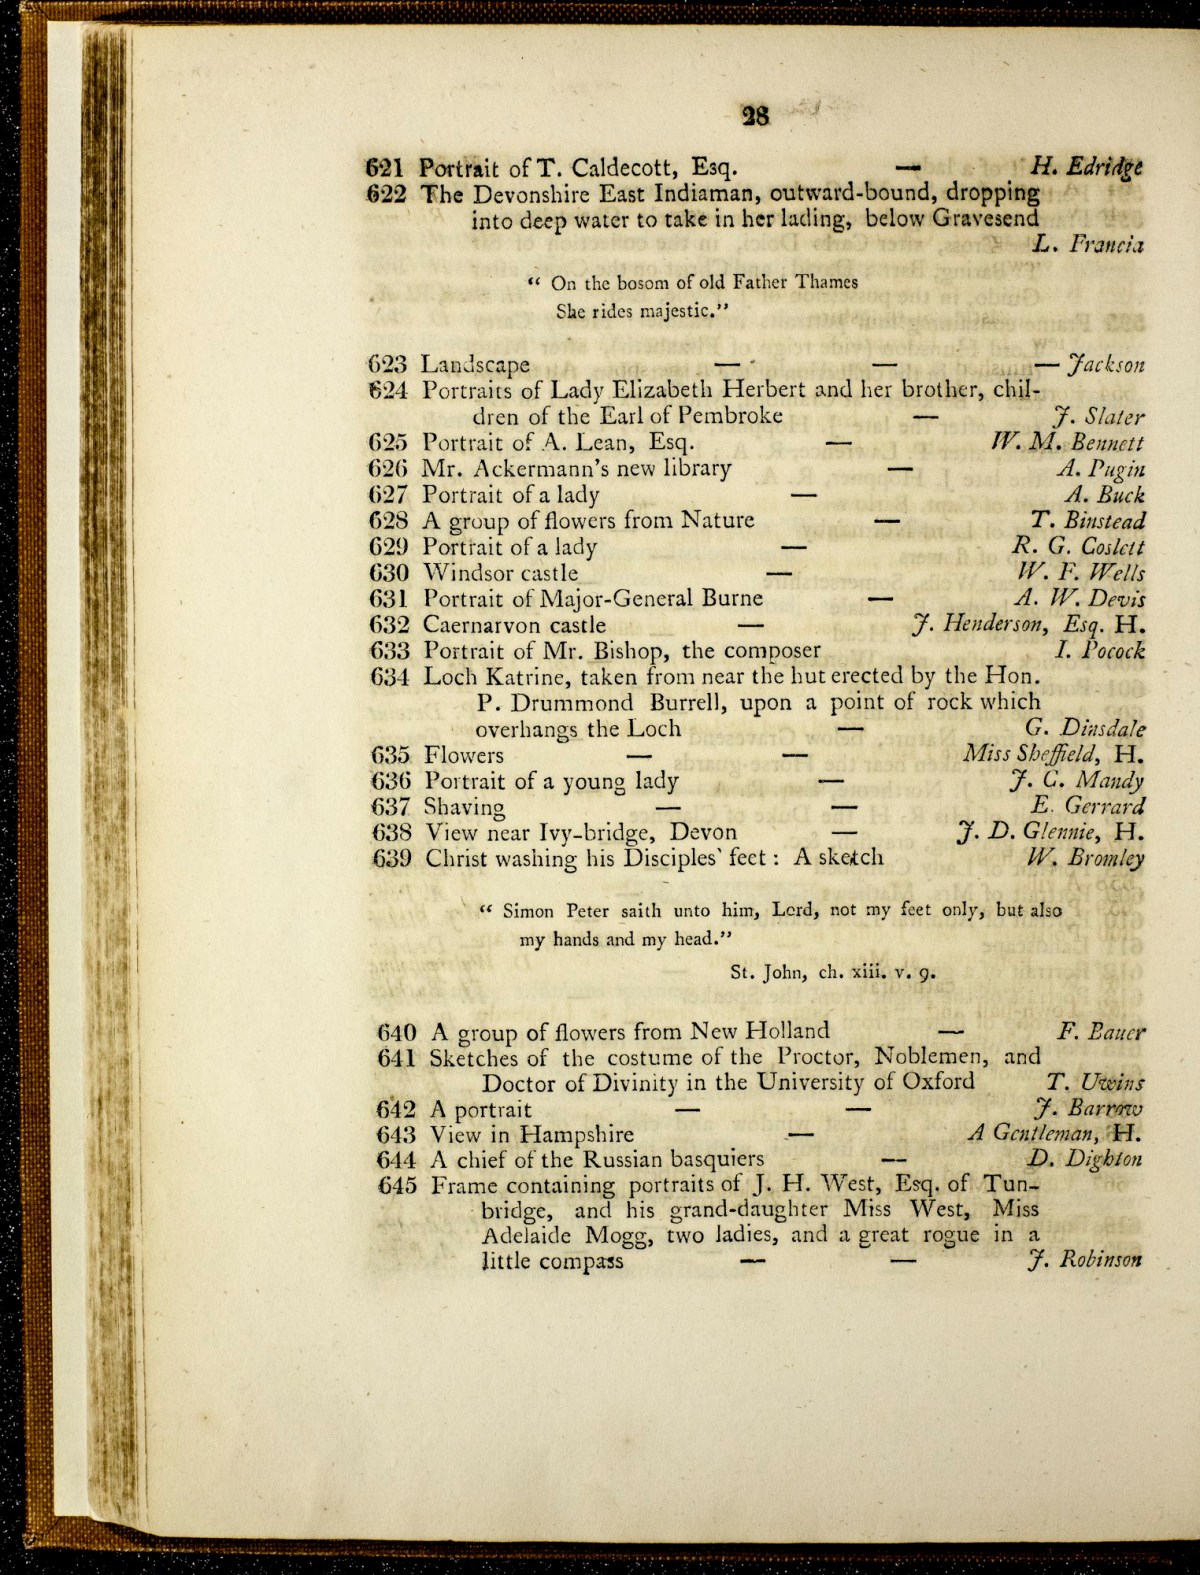 28
621 Portrait of T. Caldecott, Esq. — H. Edridge
622 The Devonshire East Indiaman, outward-bound, dropping
into deep water to take in her lading, below Gravesend
L. Francia
“ On the bosom of old Father Thames
She rides majestic.”
623 Landscape — — — Jackson
624 Portraits of Lady Elizabeth Herbert and her brother, chil-
dren of the Earl of Pembroke — J. Slater
625 Portrait of A. Lean, Esq. — W. M. Bennett
626 Mr. Ackermann’s new library — A. Pugin
627 Portrait of a lady — A. Buck
628 A group of flowers from Nature — T. Binstead
629 Portrait of a lady — R. G. Coslett
630 Windsor castle — W. F. Wells
631 Portrait of Major-General Burne — A. W. Devis
632 Caernarvon castle — J. Henderson, Esq. H.
633 Portrait of Mr. Bishop, the composer I. Pocock
634 Loch Katrine, taken from near the hut erected by the Hon.
P. Drummond Burrell, upon a point of rock which
overhangs the Loch — G. Dinsdale
635 Flowers — — Miss Sheffield, H.
636 Portrait of a young lady — J. C. Mandy
637 Shaving — — E. Gerrard
638 View near Ivy-bridge, Devon — J. D. Glennie, H.
639 Christ washing his Disciples’ feet : A sketch W. Bromley
“ Simon Peter saith unto him, Lord, not my feet only, but also
my hands and my head.”
St. John, ch. xiii. v. 9.
640 A group of flowers from New Holland — F. Bauer
641 Sketches of the costume of the Proctor, Noblemen, and
Doctor of Divinity in the University of Oxford T. Uwins
642 A portrait — — J. Barrow
643 View in Hampshire — A Gentleman, H.
644 A chief of the Russian basquiers — D. Dighton
645 Frame containing portraits of J. H. West, Esq. of Tun-
bridge, and his grand-daughter Miss West, Miss
Adelaide Mogg, two ladies, and a great rogue in a
little compass — — J. Robinson